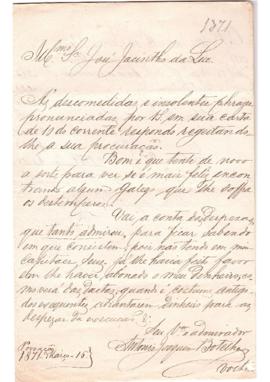 1871
Illmo Sr José Jacintho da Luz
As descomedidas, e insolentes phrases
pronunciadas por VS. em sua carta
de 10 do corrente respondo regeitando
lhe a sua procuração.
Bom é que tente de novo
a sorte para ver se é mais feliz encon
trando algum Galego que lhe soffra
os destemperos.
Vai a conta da despeza,
que tanto admirou, para ficar sabendo
em que consistem, pois não tendo em mim
lhe haver feito favor
em lhe haver abonado o meu dinheiro,
das custas, quando é costume antigo,
dos adiantarem dinheiro para as
despezas da execução.
Seu Vor e admirador
Antonio Joaquim Botelho
Rocha
1871 Março 15